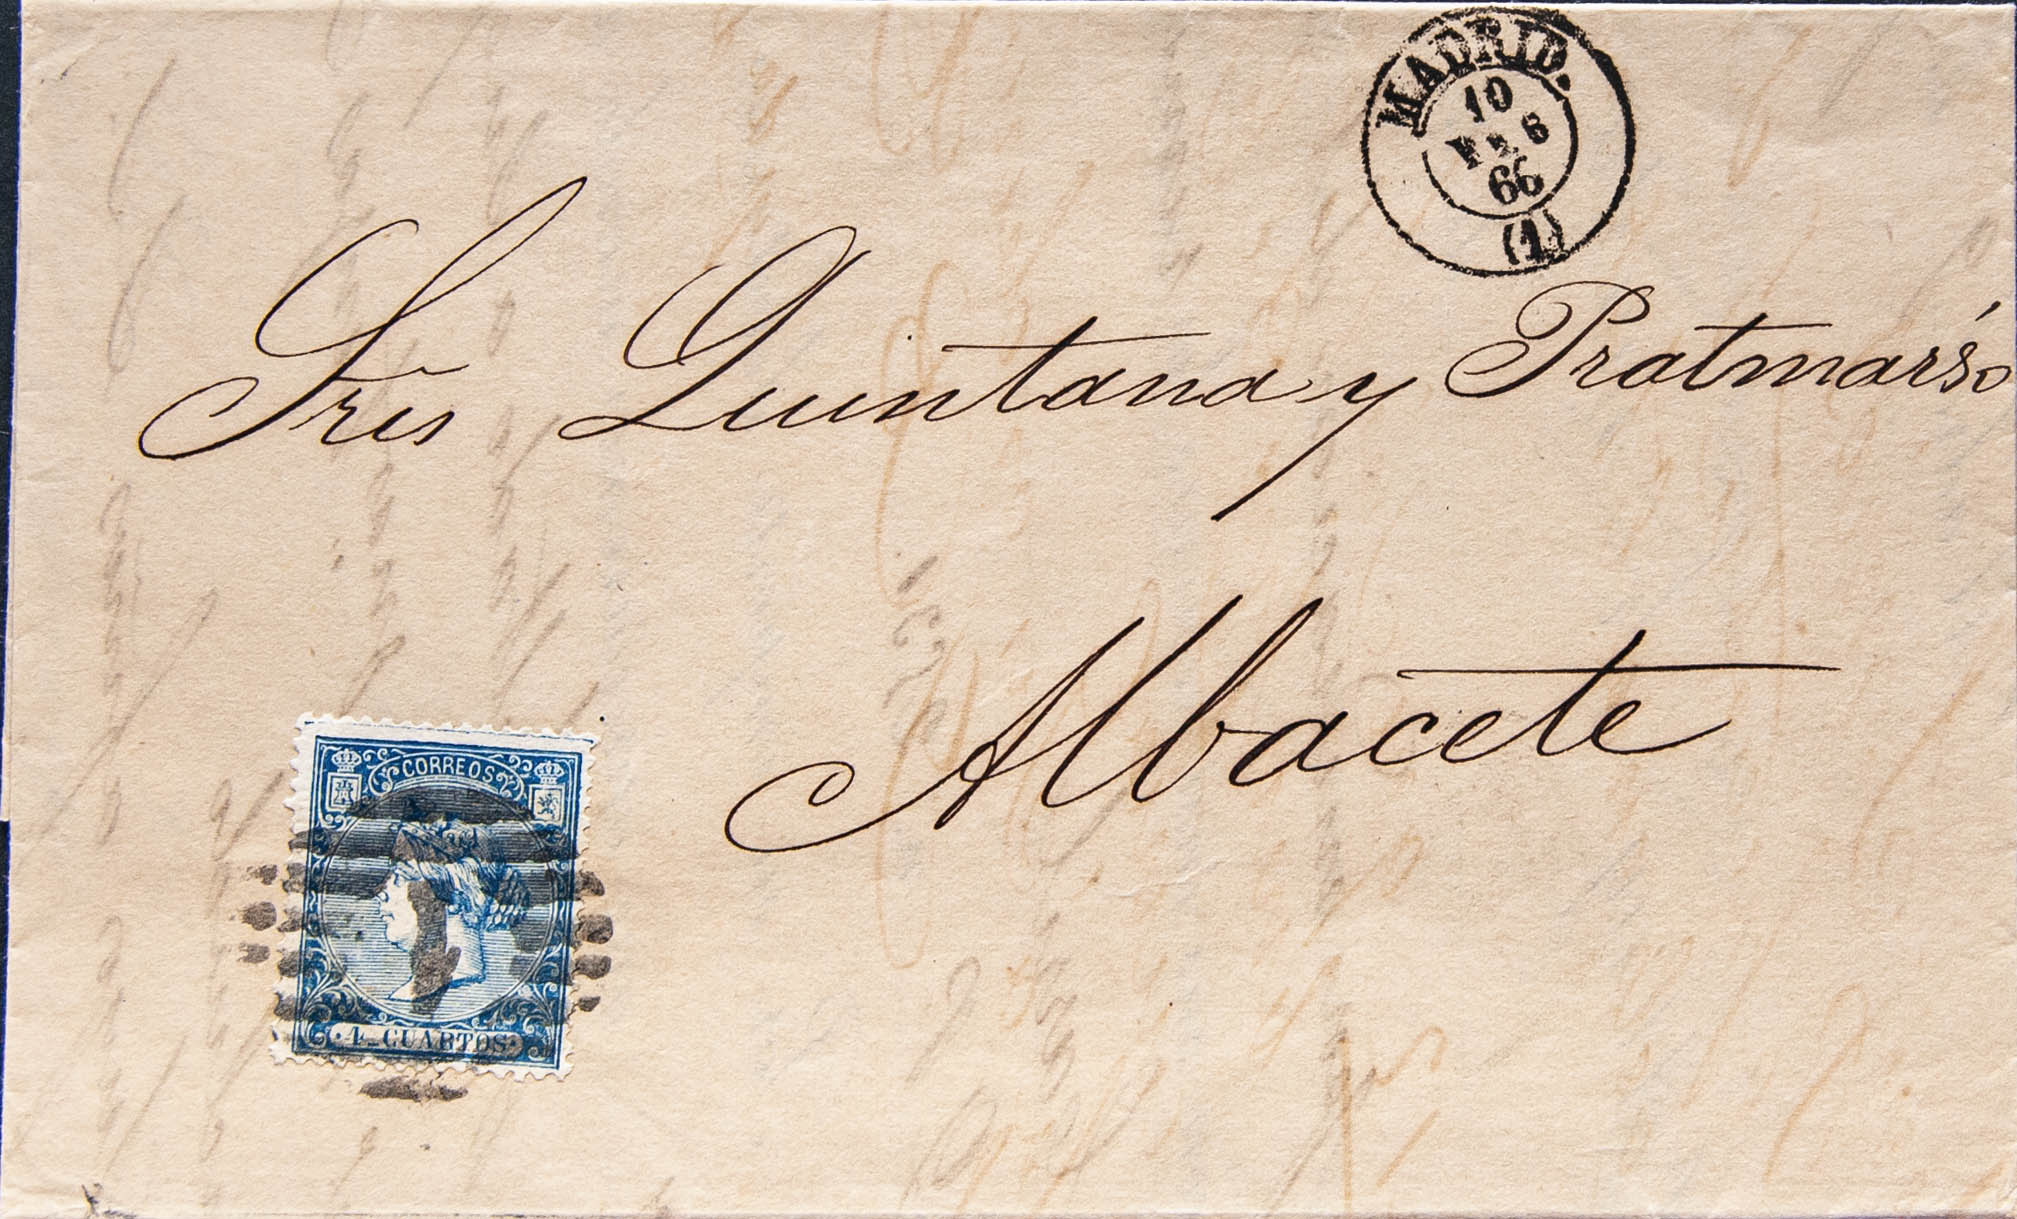 MADRID.
10
FEB
66
(1)
Sres Quintana y Pratmarsó
Albacete
CORREOS
1
4 CUARTOS